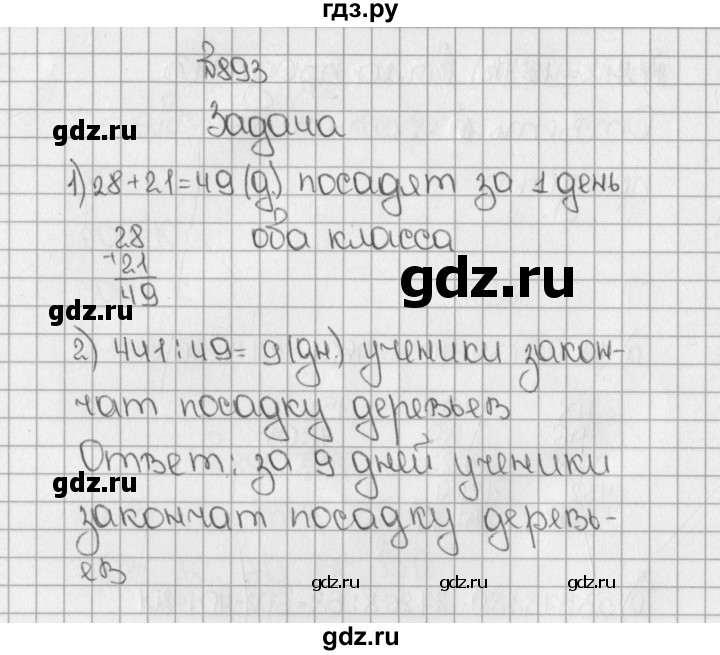 гдз.ру
№893
Задача
gdz.ru
1) 28+21=49 (д.) посадят за 1 день
28 оба класса
+21
gdz.ru
49
gdz.ru
2) 441:49= 9(дн.) ученики закон-
чат посадку деревьев
Ответ: за 9 дней ученики
gdz.ru
закончат посадку деревь-
ев
gdz.ru gdz.ru gdz.ru
gdz.ru